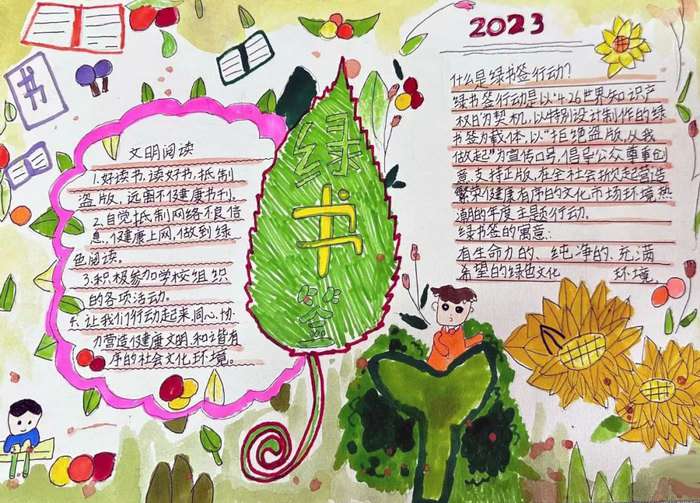 书
文明阅读
1.好读书、读好书、抵制
盗版，远离不健康书刊。
2.自觉抵制网络不良信
息，健康上网，做到绿
色阅读。
3.积极参加学校组织
的各项活动。
4.让我们行动起来，同心、协
力营造健康文明、和谐有
序的社会文化环境。
绿
书
签
2023
什么是绿书签行动？
绿书签行动是以“4.26世界知识产
权日”为契机，以特别设计制作的绿
书签为载体，以“拒绝盗版，从我
做起”为宣传口号，倡导公众尊重创
意，支持正版，在全社会掀起营造
繁荣健康有序的文化市场环境热
潮的年度主题行动。
绿书签的寓意：
有生命力的、纯净的、充满
希望的绿色文化环境